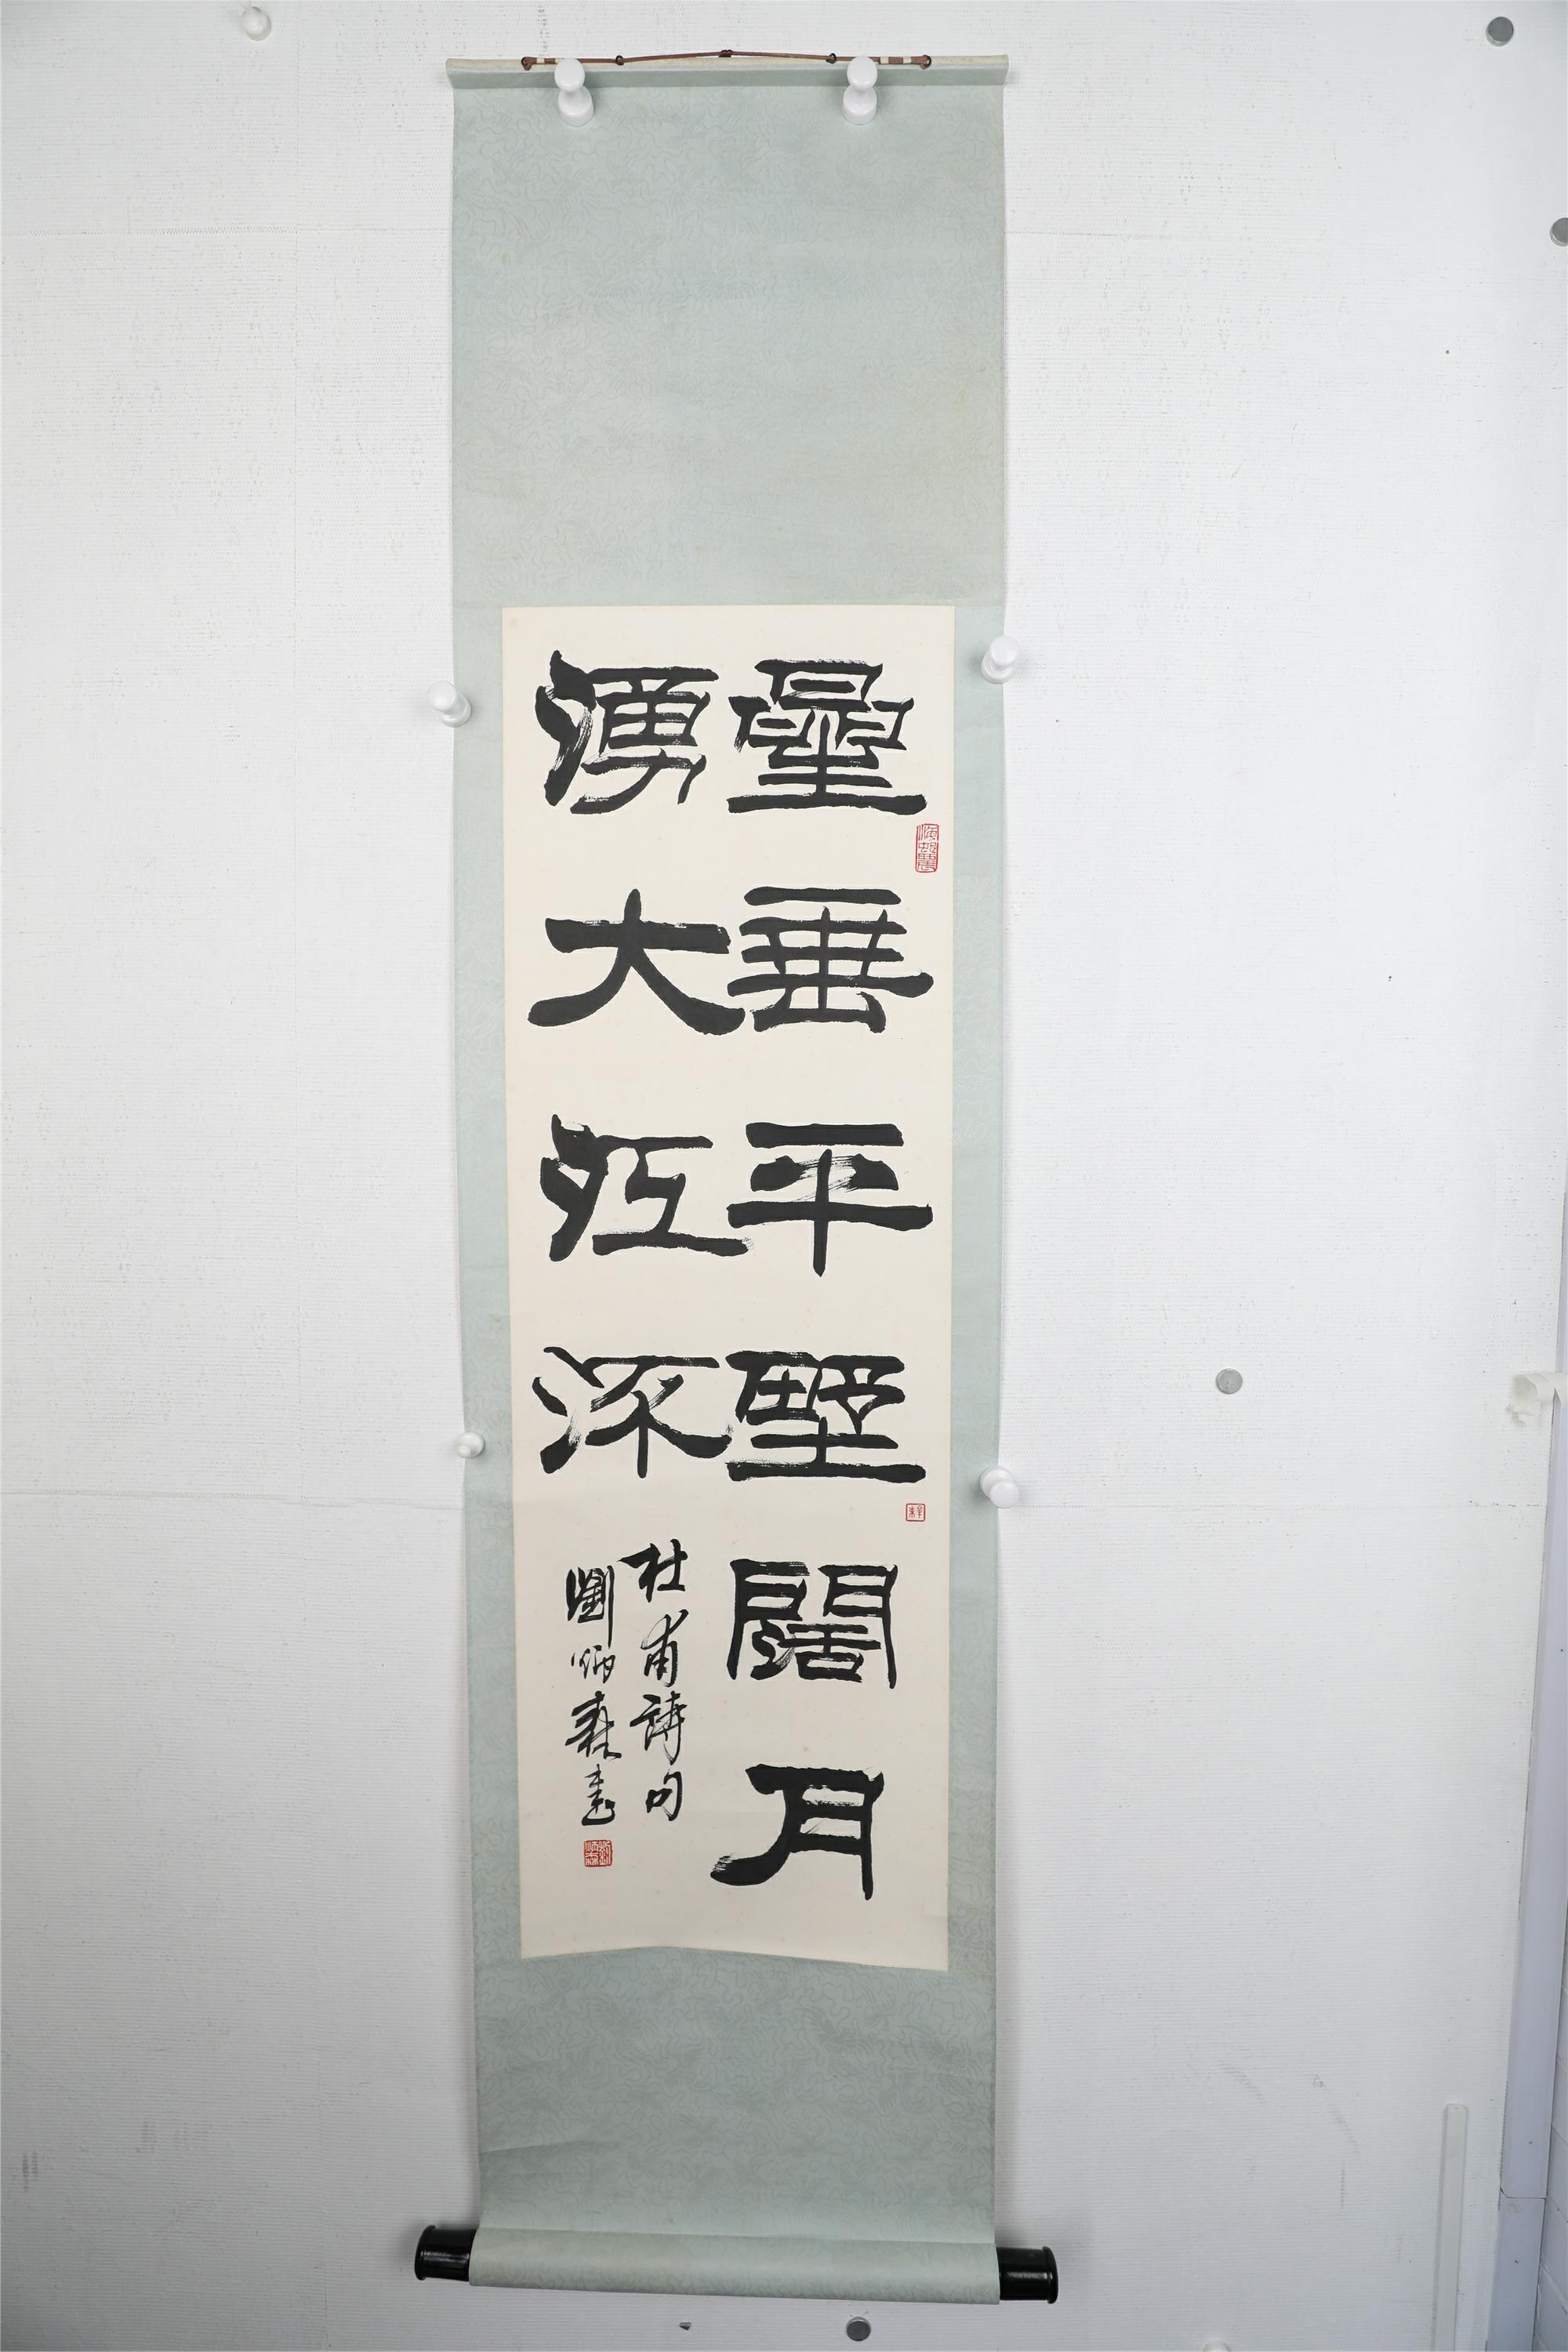 曐垂平野闊月
湧大江㳅
杜甫詩句
劉炳森書